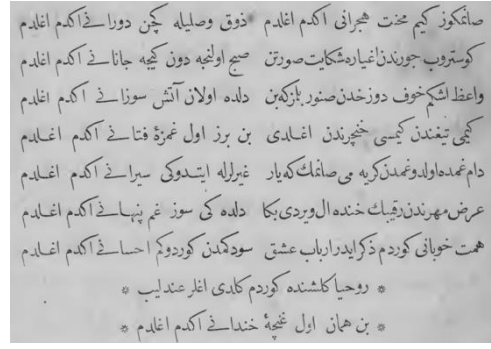 صانمكوز كيم محنت هجرانى اكدم اغلدم ذوق وصليله كچن دورانى اكدم اغلدم
كوستروب جورندن اغياره شكايت صورتن صبح اولنجه دون كيجه جانانى اكدم اغلدم
واعظ اشكم خوف دوزخدن صنور بلزكه بن دلده اولان آتش سوزانى اكدم اغلدم
كيمى تيغندن كيمسى خنجرندن اغلدى بن برز اول غمزۀ فتانى اكدم اغلدم
دام غمده اولدوغمدن كريه مى صانمك كه يار غيرلرله ايتدوكى سيرانى اكدم اغلدم
عرض مهرندن رقيبك خنده ال ويردى بكا دلده كى سوز غم پنهانى اكدم اغلدم
همت خوبانى كوردم ذكر ايدر ارباب عشق سودكمدن كوردوكم احسانى اكدم اغلدم
* روحيا كلشنده كوردم كلدى اغلر عندليب *
* بن همان اول غنچۀ خندانى اكدم اغلدم *